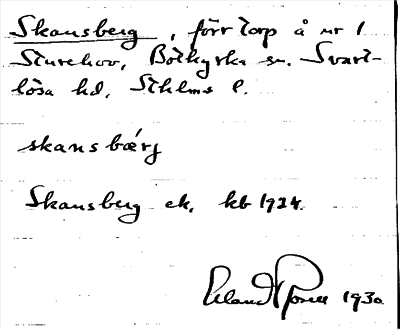 Skansberg, förr torp å nr 1
Sturehov, Botkyrka sn. Svart-
lösa hd, Sthlms l.
skansbærj
Skansberg ek. kb 1924.
Erland Rosell 1930